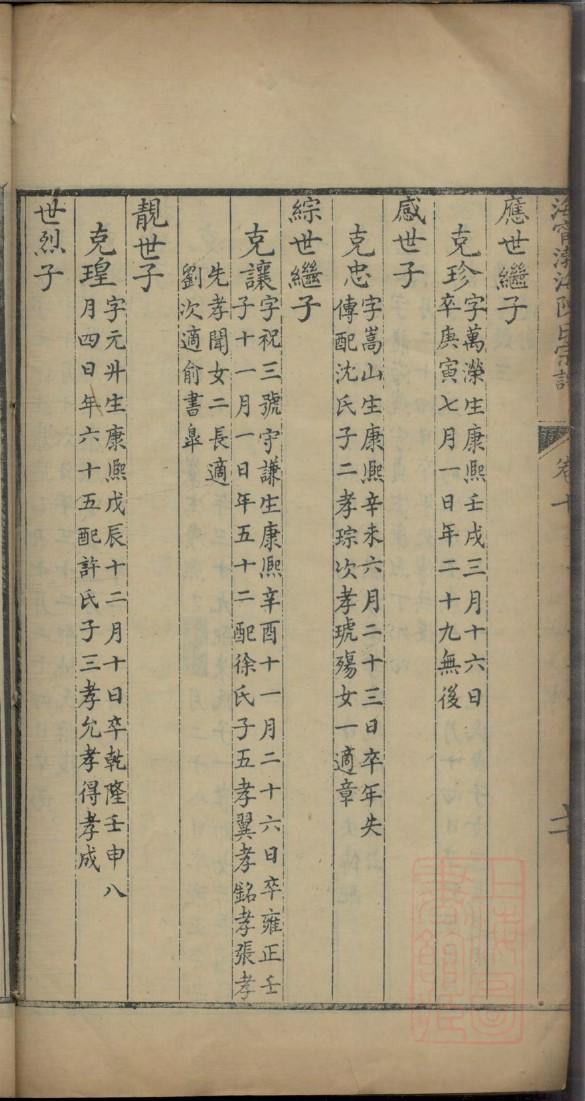 海寧渤海陳氏宗譜
卷十
應世繼子
克珍
字萬濚生康熙壬戌三月十六日
卒庚寅七月一日年二十九無後
感世子
克忠
字嵩山生康熙辛未六月二十三日卒年失
傳配沈氏子二孝琮次孝琥殤女一適章
綜世繼子
克讓
字祝三號守謙生康熙辛酉十一月二十六日卒雍正壬
子十一月一日年五十二配徐氏子五孝翼孝銘孝張孝
先孝聞女二長適
劉次適俞書臯
靚世子
克瑝
字元升生康熙戊辰十二月十日卒乾隆壬申八
月四日年六十五配許氏子三孝允孝得孝成
世烈子